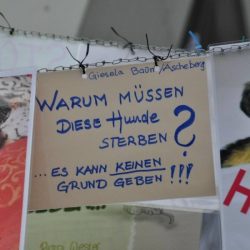 Giesela Baun / Ascheberg
WARUM MÜSSEN
DIESE Hunde
STERBEN ?
... ES KANN KEINEN
GRUND GEBEN !!!
H